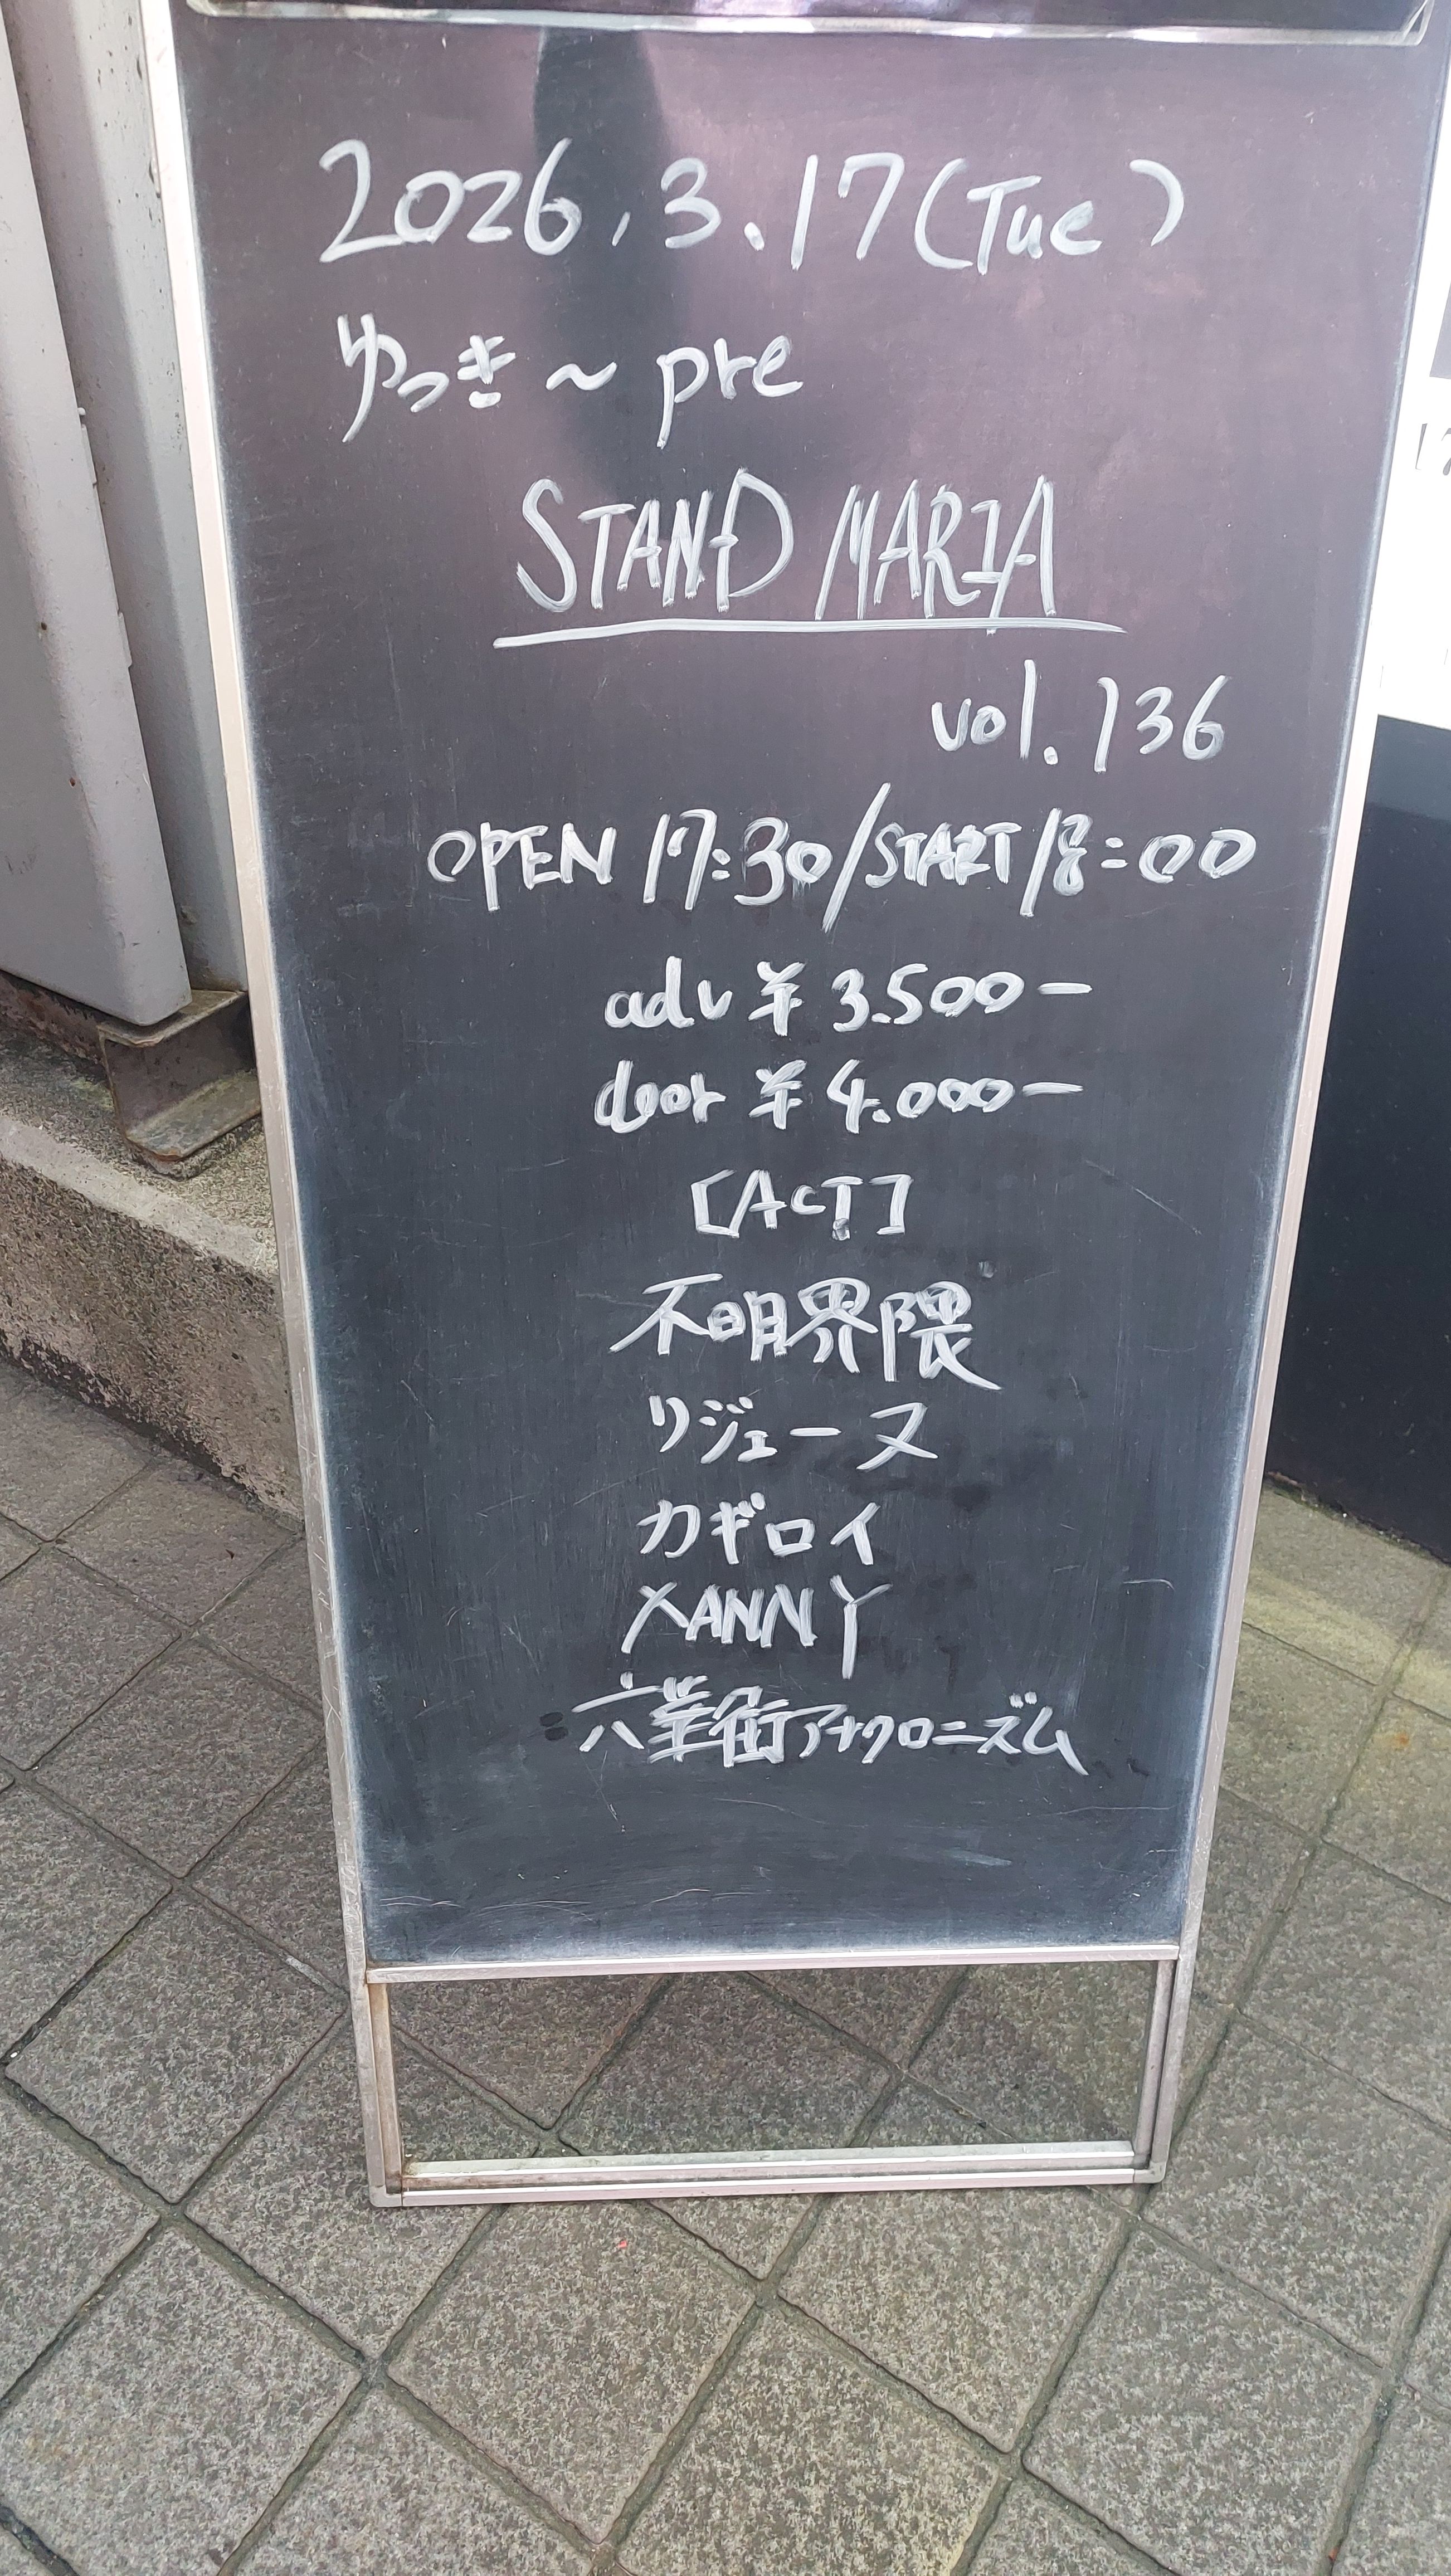 2026.3.17(Tue)
ゆっき~pre
STAND MARIA
vol.136
OPEN 17:30/START 18:00
adv ¥3.500-
door ¥4.000-
[ACT]
不明界隈
リジューヌ
カギロイ
XANNY
六等街アナクロニズム